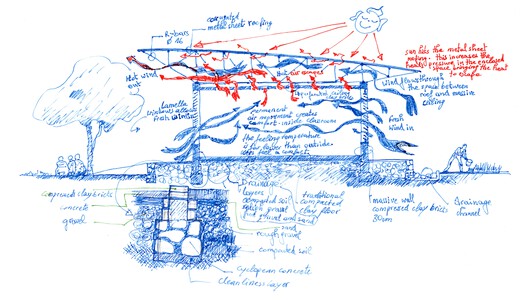 corrugated
metal sheet roofing
Hot wind
out
Hot air escapes
sun hits the metal sheet
roofing. this increases the
pressure in the enclosed
space bringing the heat
to
wind flow through
the space between
and massive
ceiling
Lamella
windows allow
fresh
permanent
air movement creates
comfort inside classroom
the feeling temperature
is far lower than outside.
fresh
wind in
compressed clay brics
concrete
gravel
Drainage
layers
compacted soil
rough gravel
gravel and sand
sand
rough gravel
compacted soil
traditional
compacted
clay floor
massive wall
compressed clay brics
30cm
Drainage
channel
cyclopean concrete
cleanliness layer